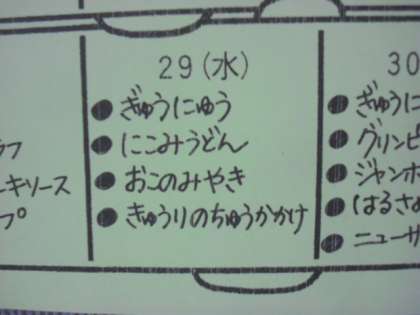 29(水)
ぎゅうにゅう
にこみうどん
おこのみやき
きゅうりのちゅうかかけ
30
ぎゅうに
グリンピ
ジャンボ
はるさめ
ニューサ
ラフ
ーキソース
プ